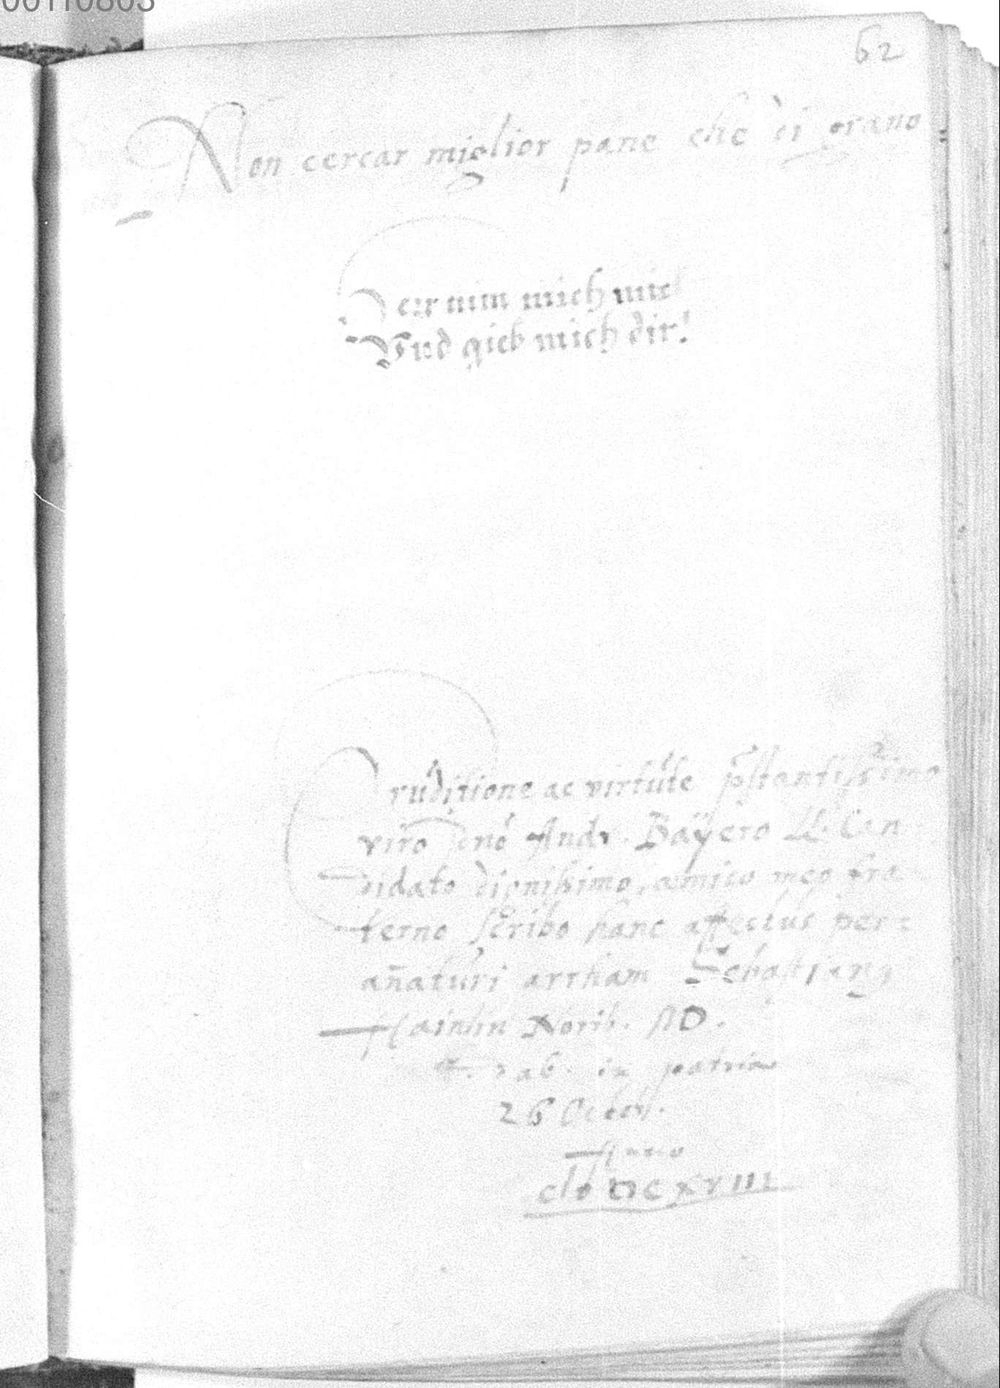 00110803
62
Non cercar miglior pane che di grano.
Herr nim mich mir
Vnd gieb mich dir!
Erúditione ac virtúte p̄stantissimo
viro Dño Andr. Baÿero LL. Can
didato dignissimo, amico meo fra
terno scribo hanc affectus per=
añaturi arrham Sebastiang
Hainlin Norib. AD.
in patria
26 Octobr.
Anno
cIↄ Dc XVIII